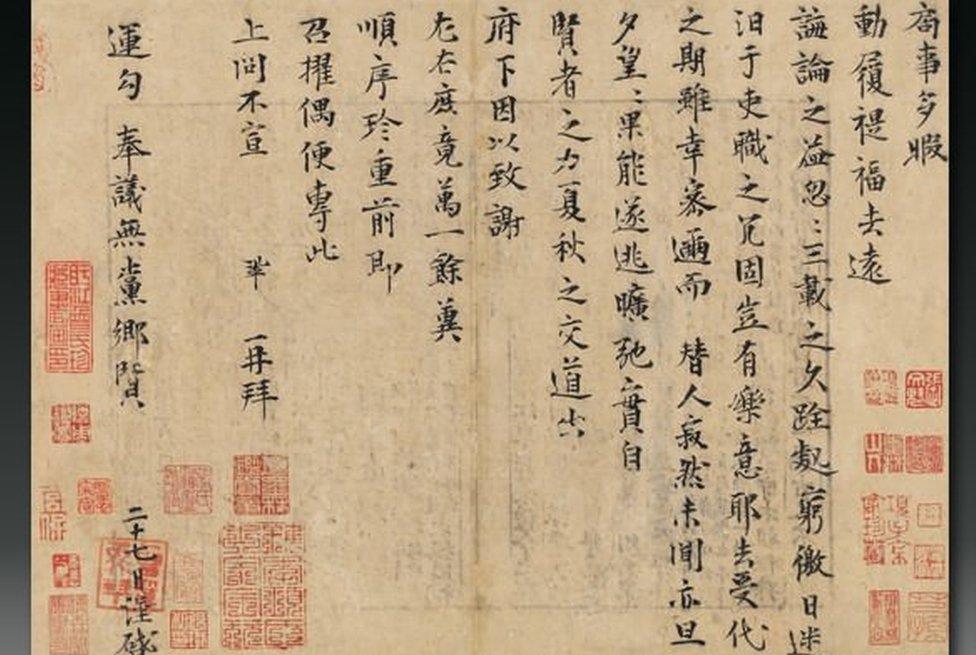 局事多暇
動履禔福去遠
誨論之益忽〻三載之久跧處窮徼日迷
汩于吏職之冗固豈有樂意耶去受代
之期雖幸密邇而替人寂然未聞亦旦
夕望〻果能遂逃曠弛實自
賢者之力夏秋之交道出
府下因以致謝
左右庶竟萬一餘冀
順序珍重前即
召擢偶便專此
上問不宣 鞏 再拜
運勾奉議無黨鄉賢
二十七日謹